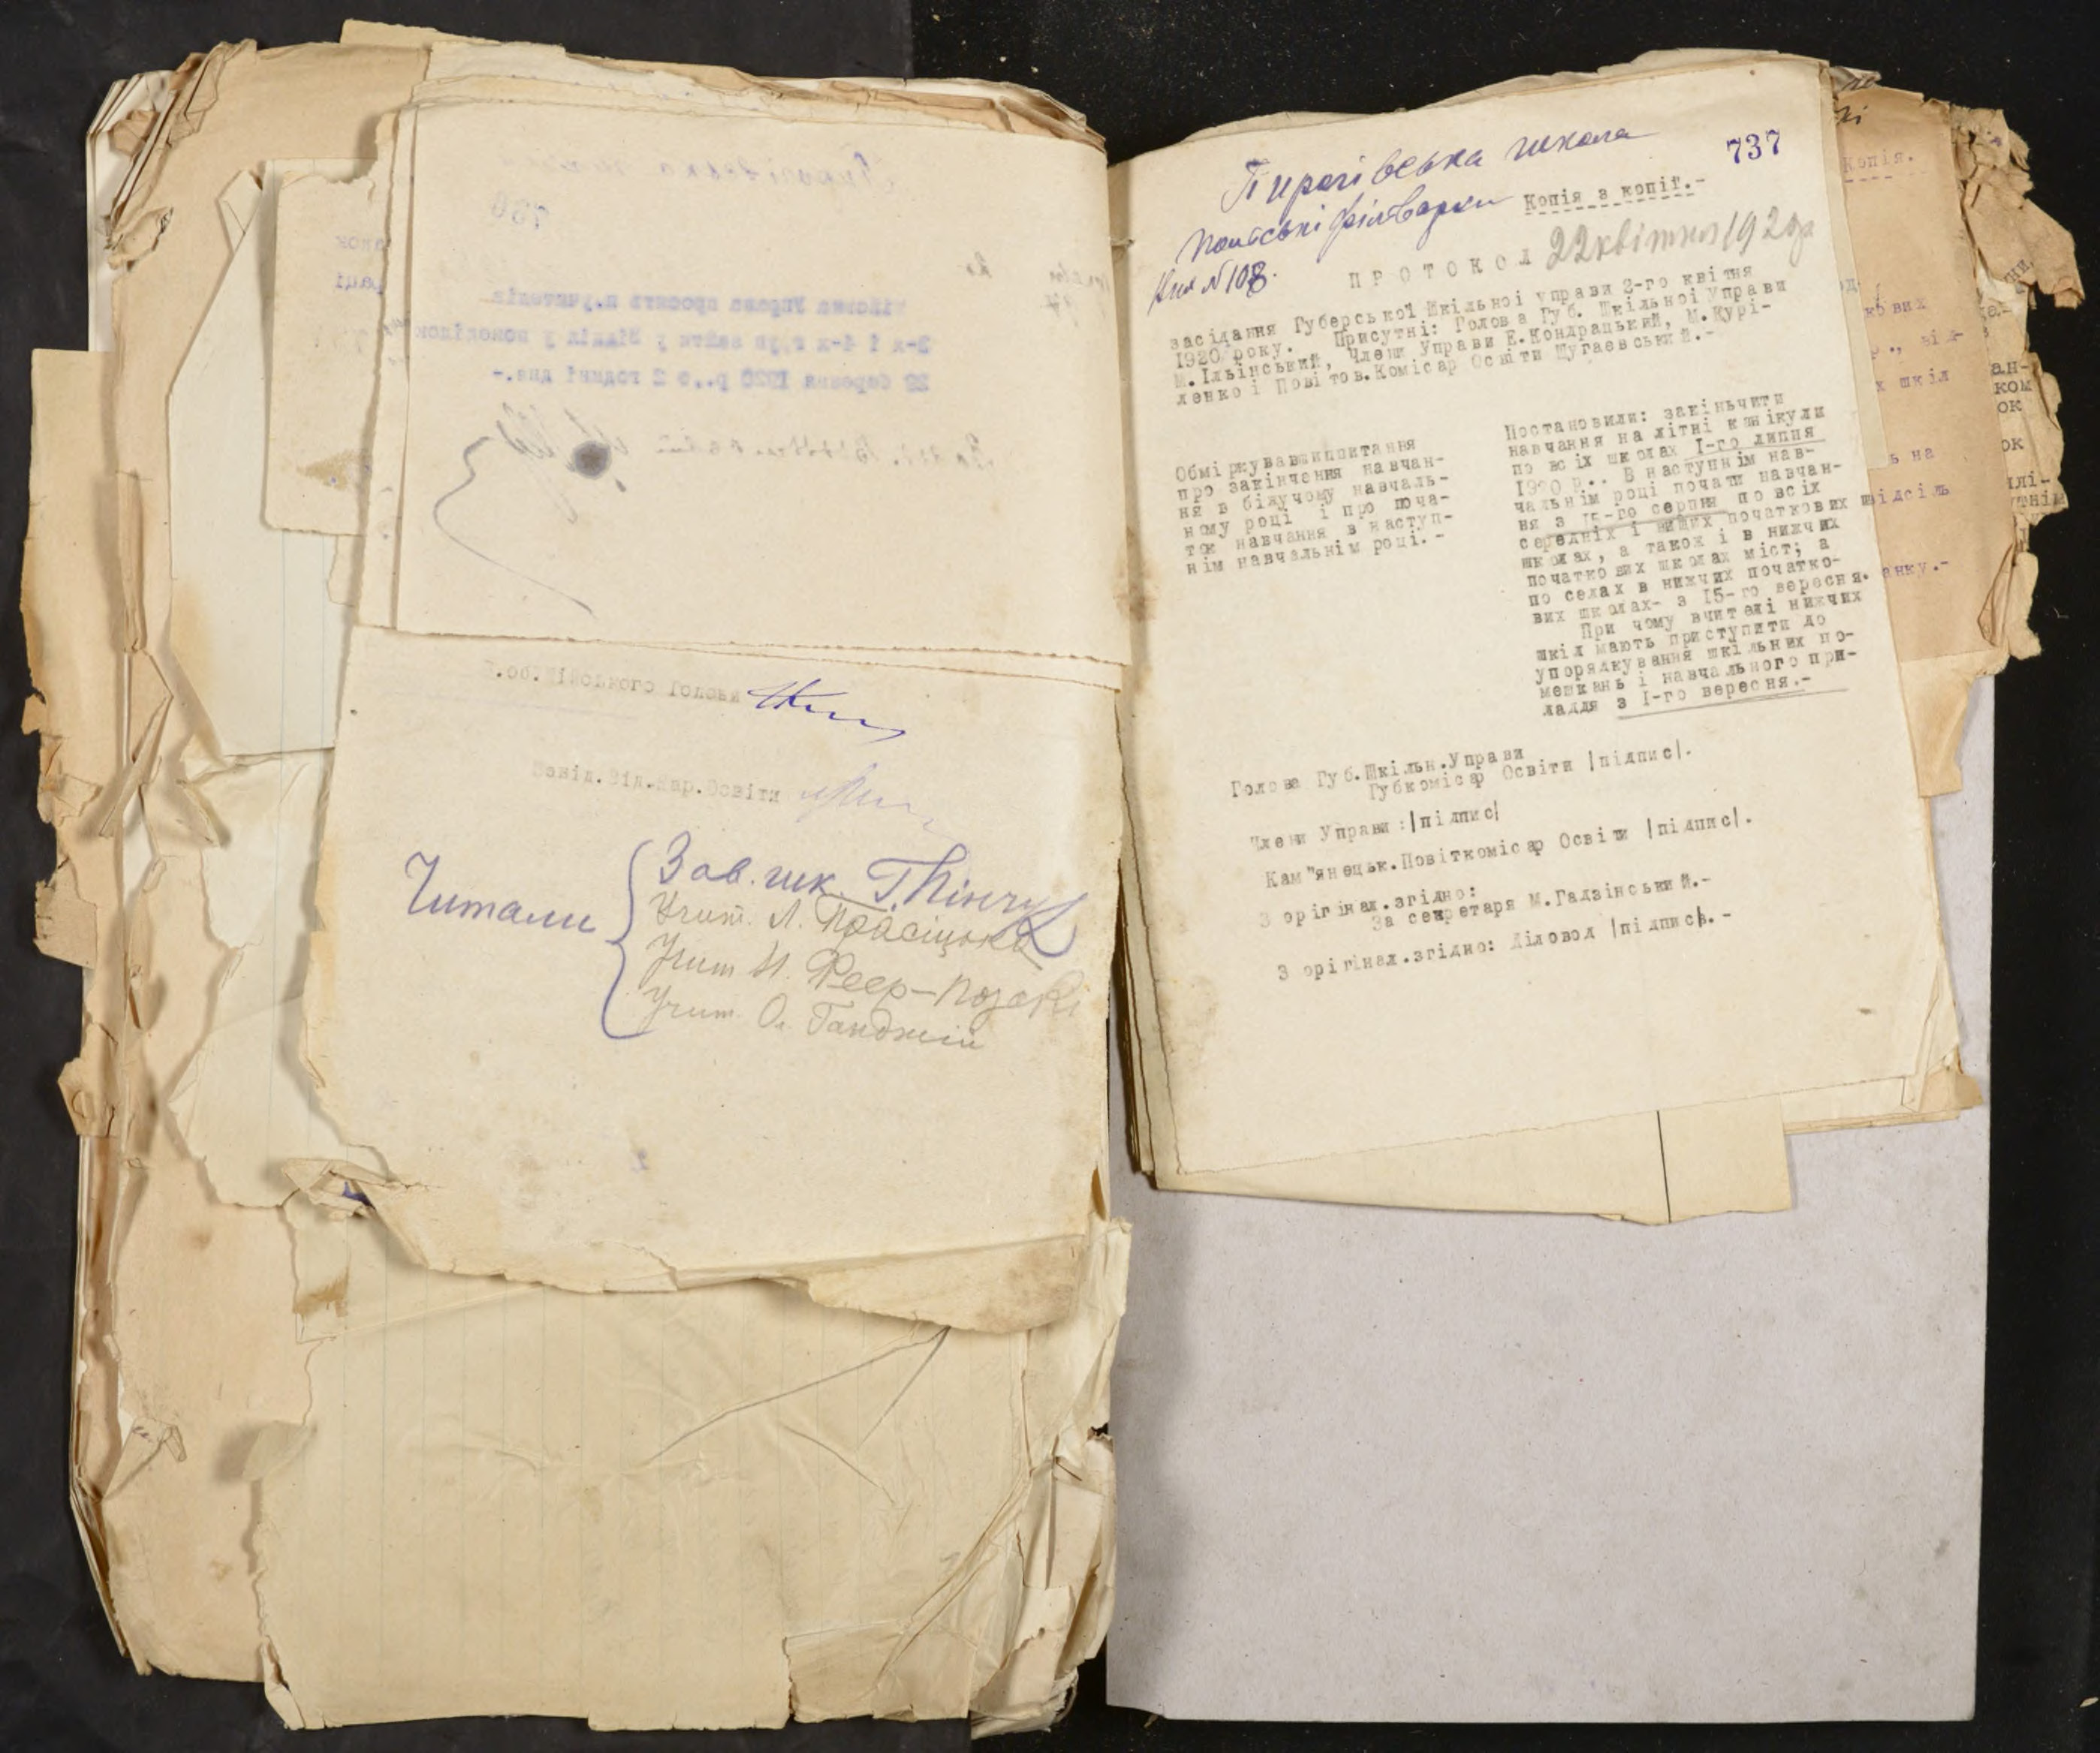 В.об.Міського Голови
Завід.Від.Нар.Освіти
Читали
Зав. шк. Г. Кінчук
Учит. Л.
Учит. Н. Реер-
Учит. Ол. Ганджій
737
Пирогівська школа
Польські фільварки
Копія з копії.-
№ 108.
ПРОТОКОЛ 22 квітня 1920 р
засідання Губерської Шкільної управи 2-го квітня
1920 року. Присутні: Голова Губ. Шкільної Управи
М.Ільїнський, Члени Управи Е.Кондрацький, М.Курі-
ленко і Повітов.Комісар Освіти Шугаевський.-
Обміркувавши питання
про закінчення навчан-
ня в біжучому навчаль-
ному році і про поча-
ток навчання в наступ-
нім навчальнім році.-
Постановили: закіньчити
навчання на літні канікули
по всіх школах І-го липня
1920 р.. В наступнім нав-
чальнім році почати навчан-
ня з 15-го серпня по всіх
середніх і вищих початкових
школах, а також і в нижчих
початкових школах міст; а
по селах в нижчих початко-
вих школах- з 15-го вересня.
При чому вчителі нижчих
шкіл мають приступити до
упорядкування шкільних по-
мешкань і навчального при-
ладдя з І-го вересня.-
Голова Губ.Шкільн.Управи
Губкомісар Освіти |підпис|.
Члени Управи:|підпис|
Кам"янецьк.Повіткомісар Освіти |підпис|.
З орігінал.згідно:
За секретаря М.Гадзінський.-
З орігінал.згідно: Діловод |підпис|.-
Копія.
кових
х шкіл
ь на
відсіль
анку.-
ан-
ком
ок
ок